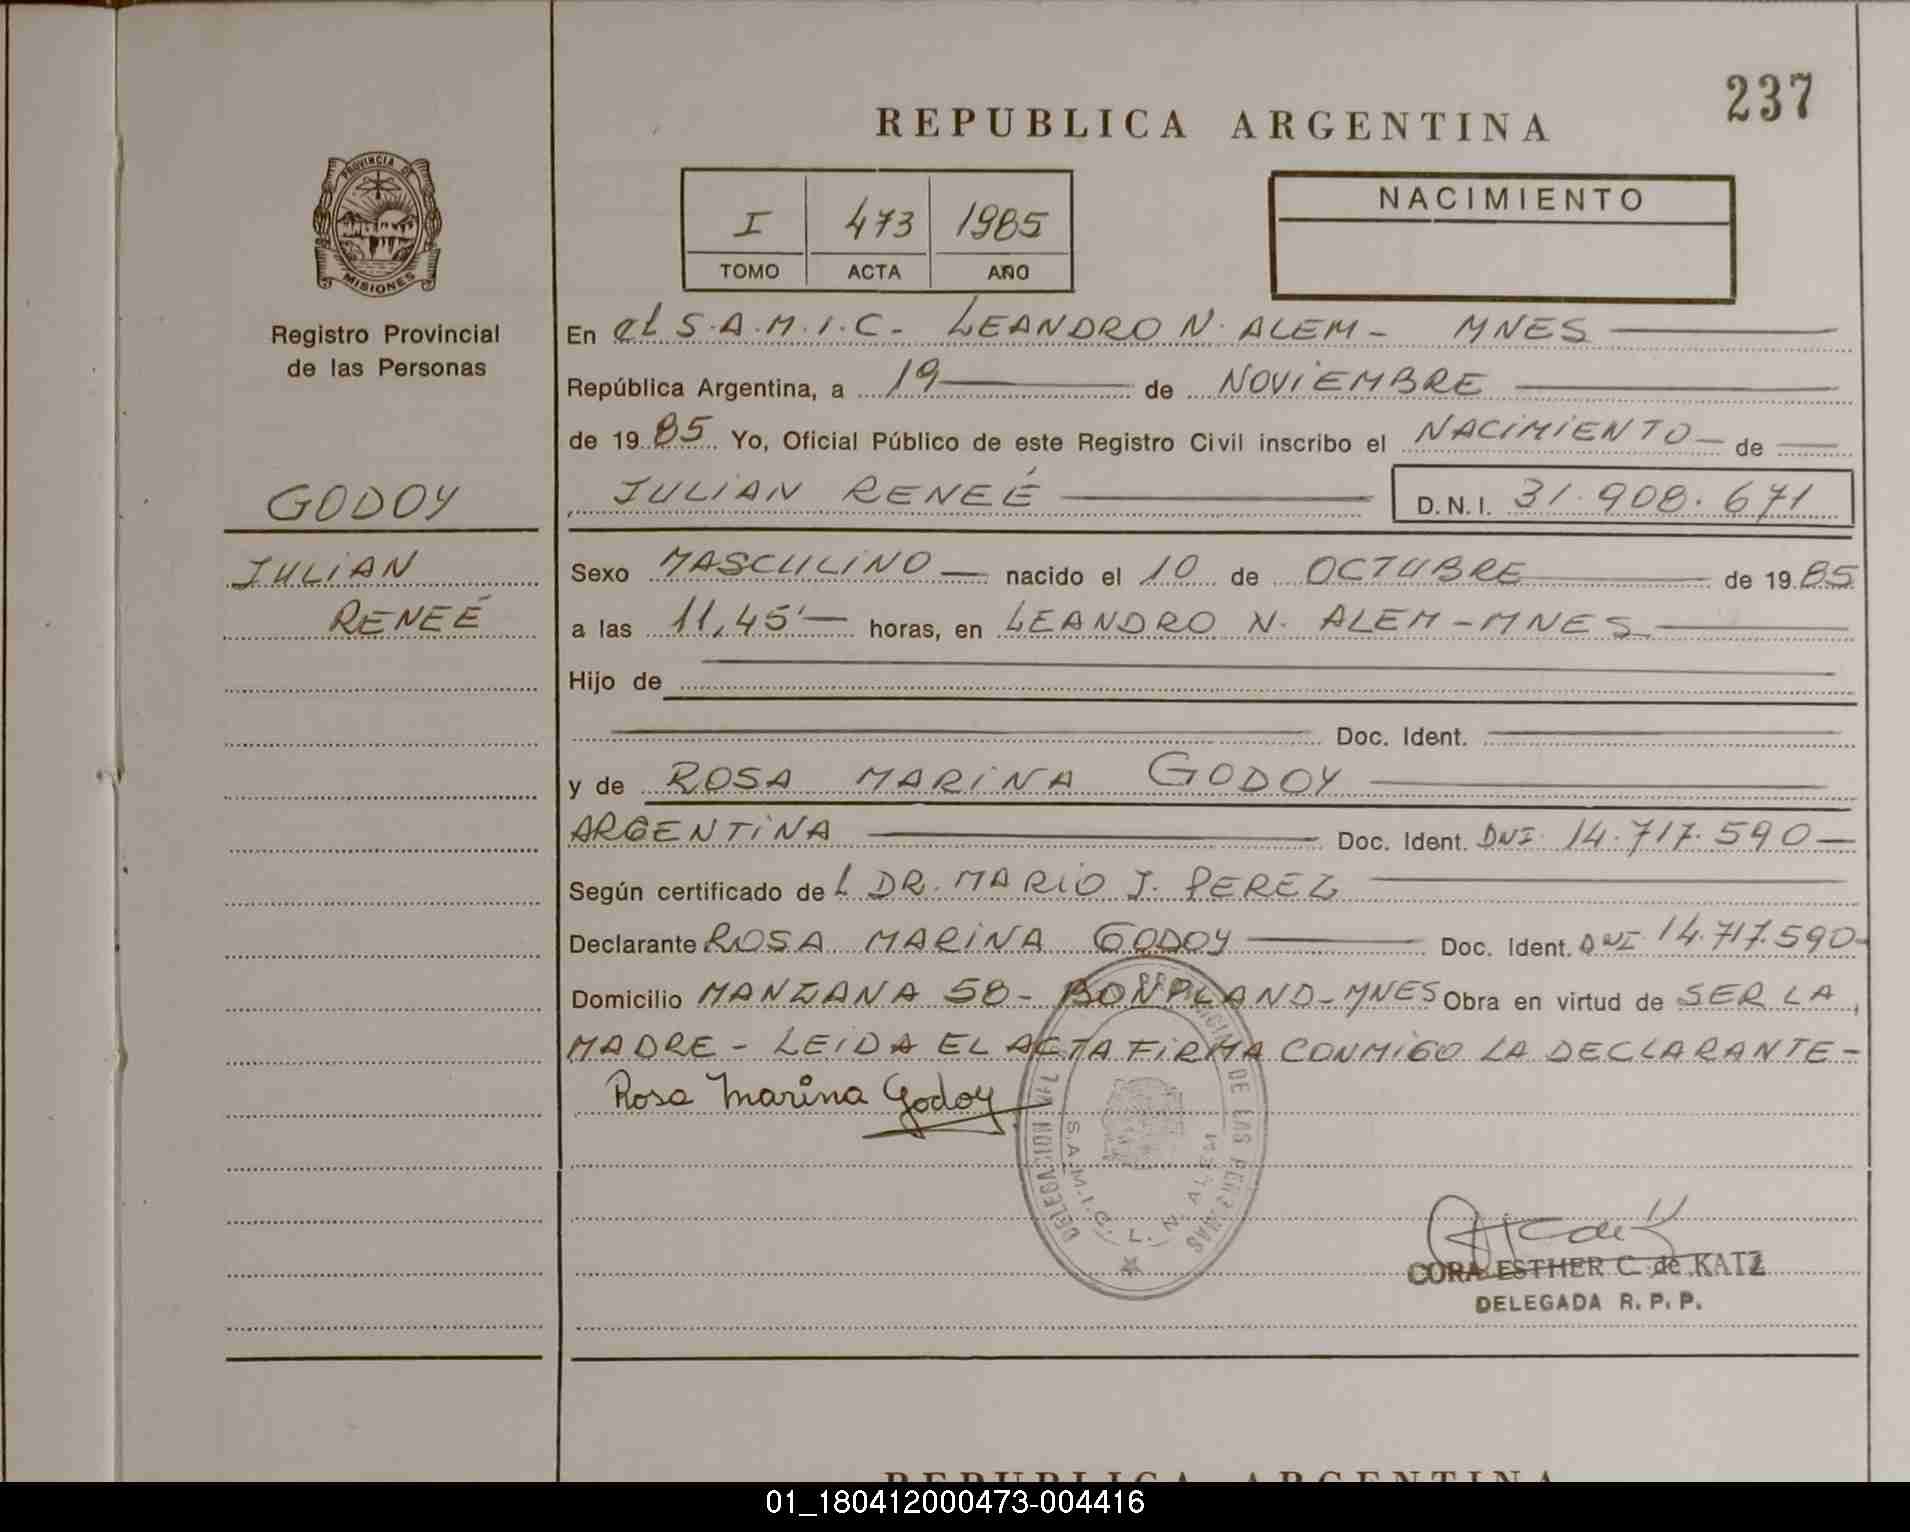 237
REPUBLICA ARGENTINA
PROVINCIA DE
MISIONES
Registro Provincial
de las Personas
GODOY
JULIAN
RENEÉ
I 473 1985
TOMO ACTA AÑO
NACIMIENTO
En el S.A.M.I.C. - LEANDRO N. ALEM - MNES
República Argentina, a 19 de NOVIEMBRE
de 1985 Yo, Oficial Público de este Registro Civil inscribo el NACIMIENTO de
JULIAN RENEÉ D.N.I. 31.908.671
Sexo MASCULINO nacido el 10 de OCTUBRE de 1985
a las 11,45' horas, en LEANDRO N. ALEM - MNES
Hijo de
Doc. Ident.
y de ROSA MARINA GODOY
ARGENTINA Doc. Ident. DNI 14.717.590
Según certificado del DR. MARIO J. PEREZ
Declarante ROSA MARINA GODOY Doc. Ident. DNI 14.717.590
Domicilio MANZANA 58 - BONPLAND - MNES Obra en virtud de SER LA
MADRE - LEIDA EL ACTA FIRMA CONMIGO LA DECLARANTE -
Rosa Marina Godoy
DE LAS PERSONAS
S.A.M.I.C. L. N. ALEM
CORA ESTHER C. de KATZ
DELEGADA R. P. P.
REPUBLICA ARGENTINA
01_180412000473-004416